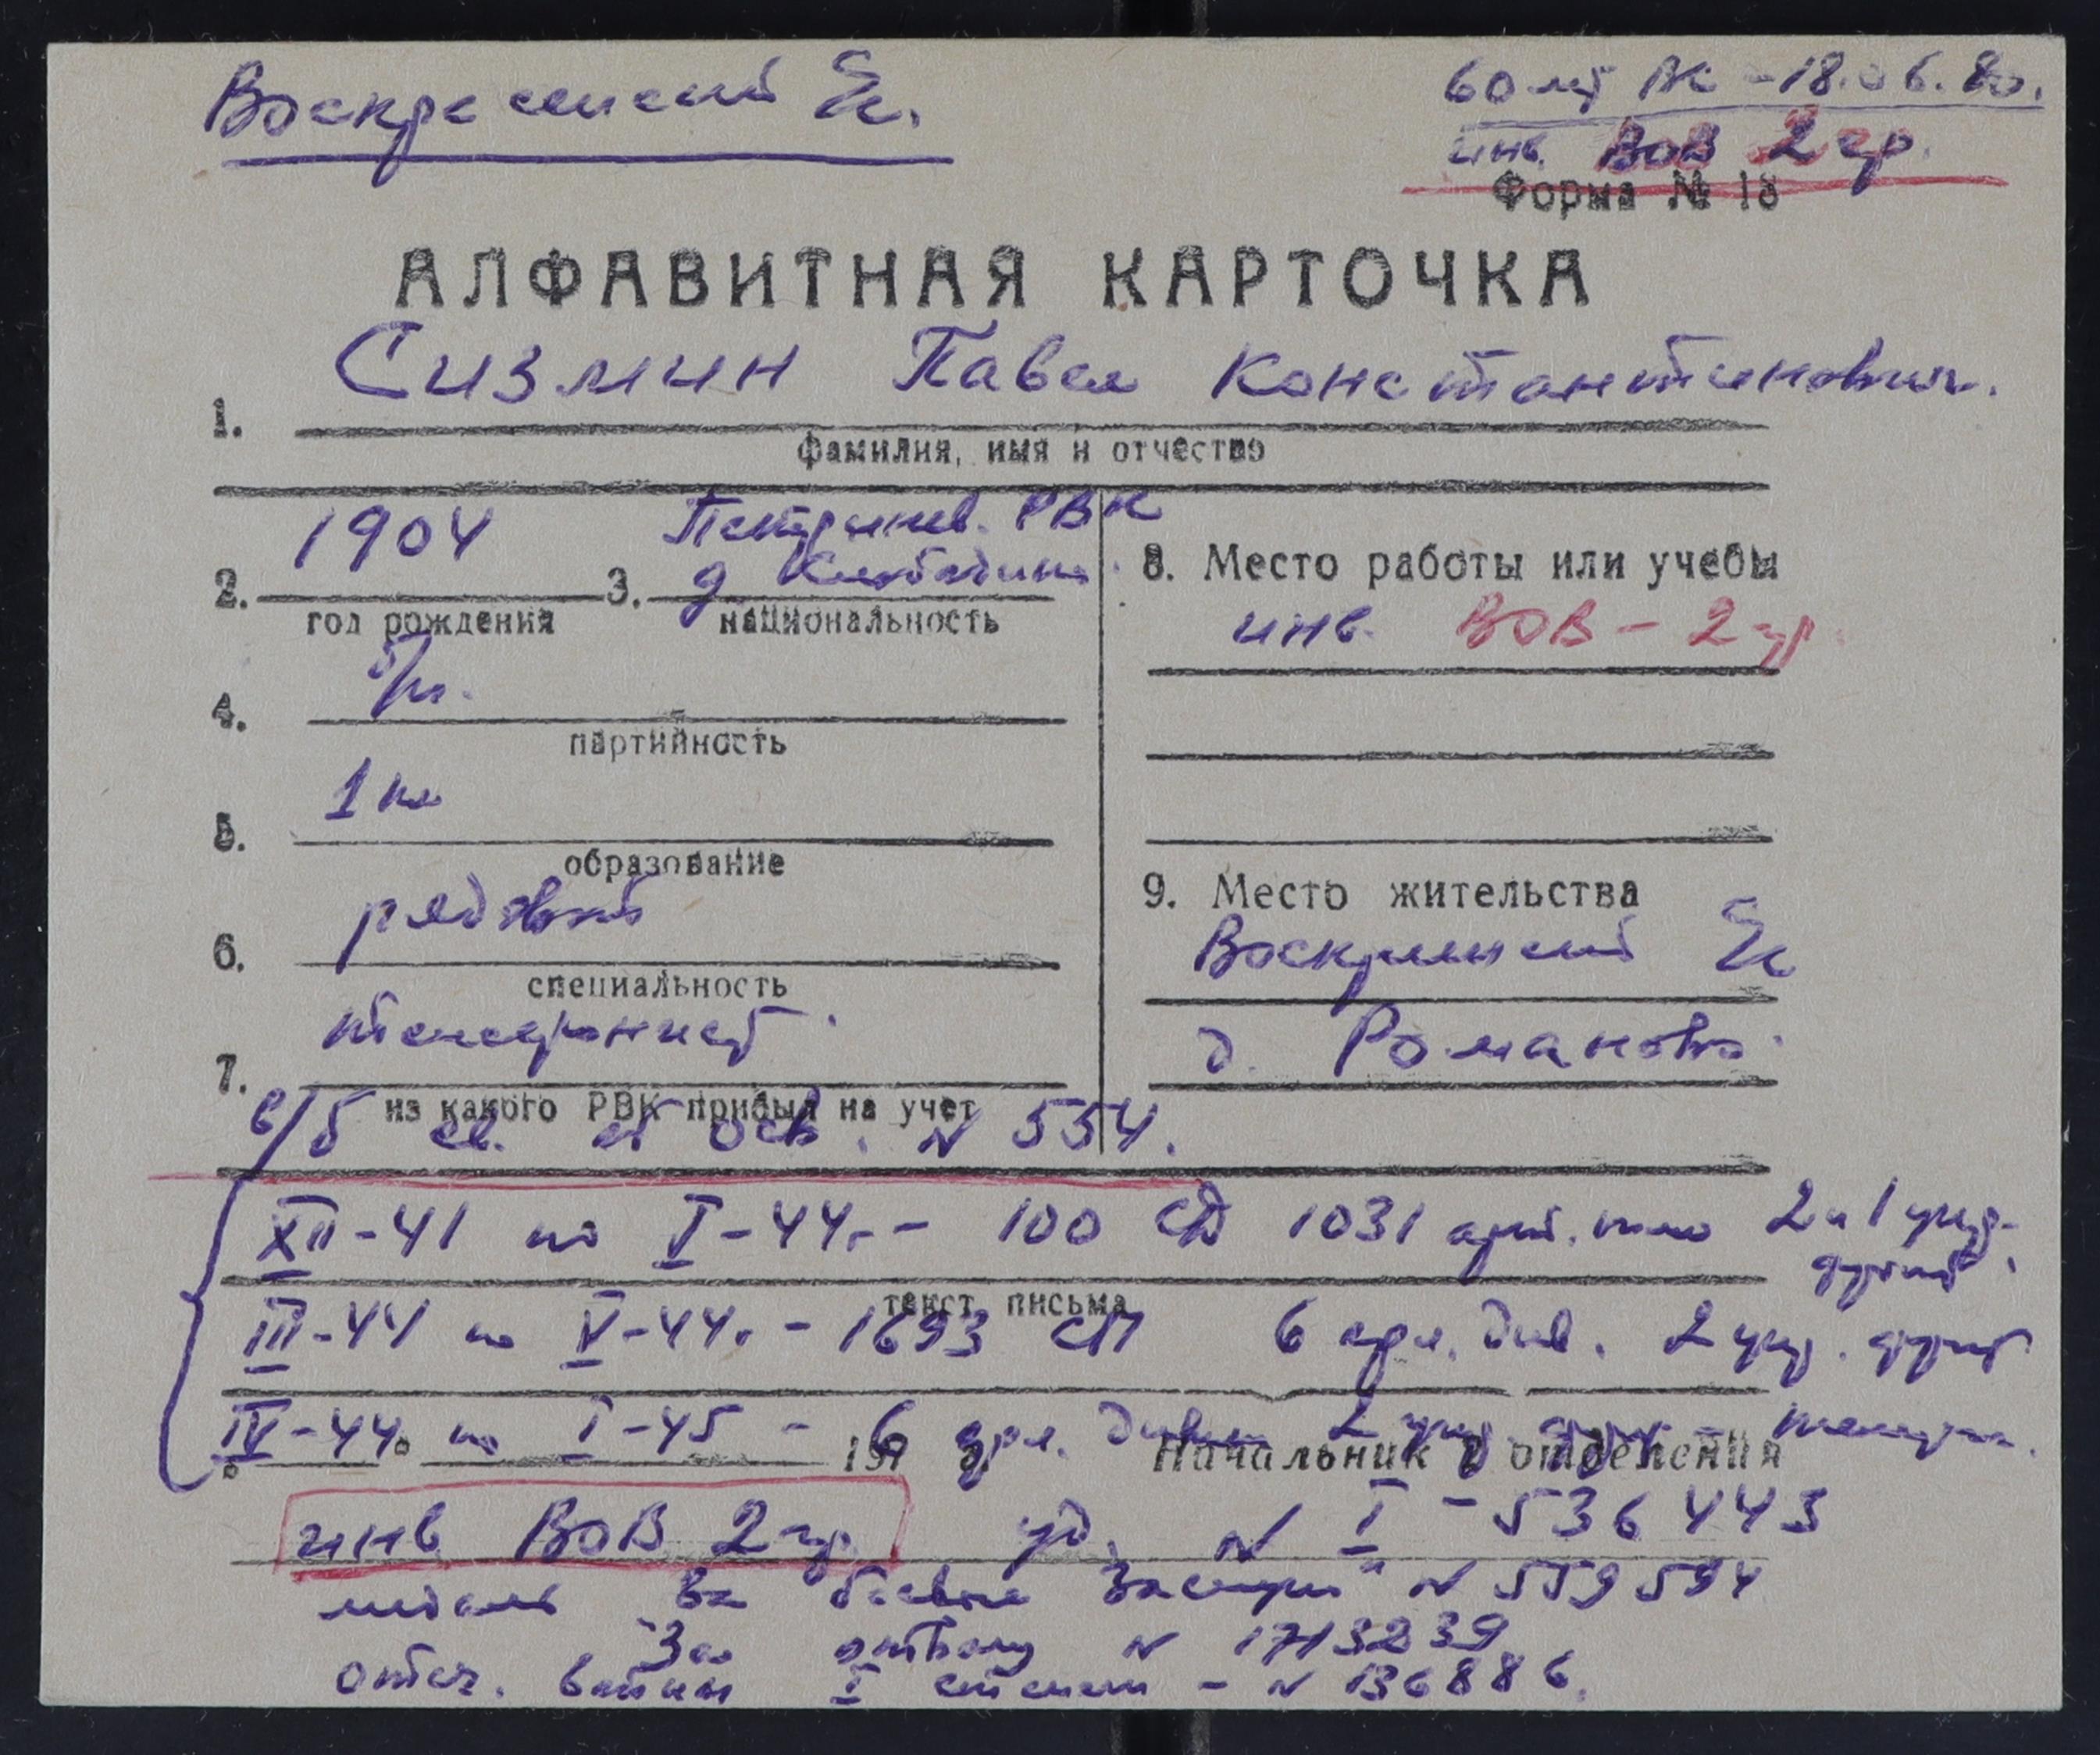 Воскресенский
60 лет ВК - 18.06.80.
инв. ВОВ 2 гр.
Форма № 18
АЛФАВИТНАЯ КАРТОЧКА
1. Сизмин Павел Константинович.
фамилия, имя и отчество
Петринев. РВК
2. 1904 3. д.
год рождения национальность
4. б/п.
партийность
5. 1 кл
образование
6. рядовой
специальность
7. телефонист.
из какого РВК прибыл на учет
8. Место работы или учебы
инв. ВОВ - 2 гр
9. Место жительства
Воскресенский
д. Романово.
в/б св. от осв. N 554.
XII-41 по I-44г. - 100 СД 1031 арт. полк 2 и 1 укр.
фронт.
текст письма
III-44 по V-44г. - 1693 СП 6 арт. див. 2 укр. фронт
IV-44 по I-45 - 6 арт. 2 укр.
197 г. Начальник 2 отделения
инв ВОВ 2 гр. уд. N I - 536443
медаль За боевые заслуги" N 559594
"За отвагу N 1713239
отеч. войны I степени - N 136886.